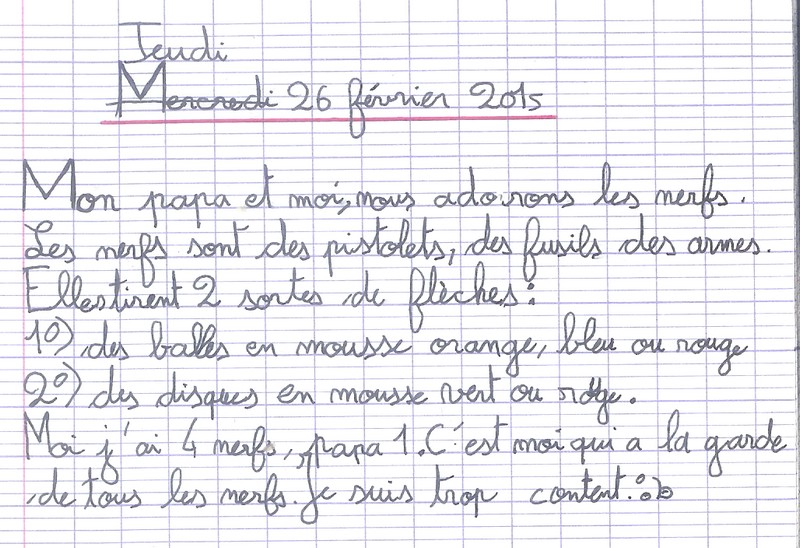 Jeudi
Mercredi 26 février 2015
Mon papa et moi, nous adorons les nerfs.
Les nerfs sont des pistolets, des fusils des armes.
Elles tirent 2 sortes de flèches :
1º) des balles en mousse orange, bleu ou rouge
2º) des disques en mousse vert ou rouge.
Moi j'ai 4 nerfs, papa 1. C'est moi qui a la garde
de tous les nerfs. Je suis trop content.